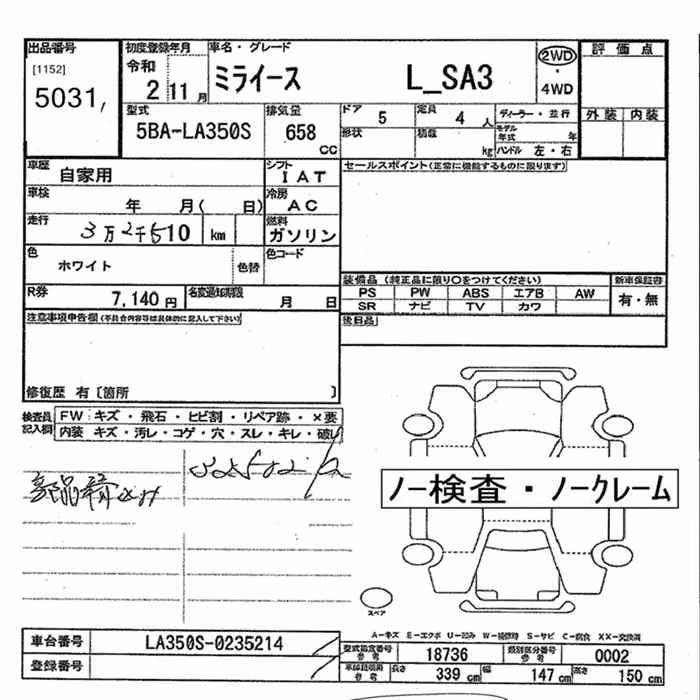 出品番号
[1152]
5031,
初度登録年月
令和
2 11月
車名・グレード
ミライース L_SA3
2WD
・
4WD
評価点
外装 内装
型式
5BA-LA350S
排気量
658
CC
ドア
5
定員
4人
ディーラー・並行
形状
積載
kg
モデル年式 年
ハンドル 左・右
車歴
自家用
シフト
IAT
セールスポイント(正常に機能するものに限ります)
車検
年 月( 日)
冷房
AC
走行
3万2千510 km
燃料
ガソリン
色
ホワイト
色替
色コード
R券
7,140円
名変通知期限
月 日
装備品(純正品に限り○をつけてください)
PS PW ABS エアB AW
SR ナビ TV カワ
新車保証書
有・無
後日品
注意事項申告欄(不具合内容等は具体的に記入して下さい)
修復歴 有〔箇所 〕
検査員記入欄
FW キズ・飛石・ヒビ割・リペア跡・×要
内装 キズ・汚レ・コゲ・穴・スレ・キレ・破レ
32502
ノー検査・ノークレーム
スペア
A-キズ E-エクボ U-凹み W-補修跡 S-サビ C-腐食 XX-交換済
車台番号
LA350S-0235214
登録番号
型式指定番号
参考
18736
類別区分番号
参考
0002
車検証引用
参考
長さ 339 cm 幅 147 cm 高さ 150 cm